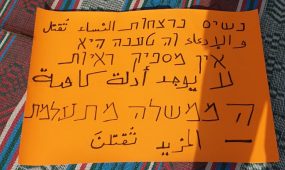 נשים נרצחות النساء تُقتل
والإدعاء וה טענה היא
אין מספיק ראיות
لا يوجد أدلة كافية
הממשלה מתעלמת
— المزيد تُقتلن